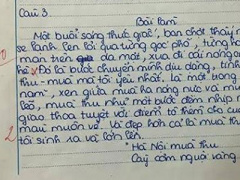 Câu 3.
Bài làm
Một buổi sáng thức giấc, bạn chợt thấy
se lạnh len lỏi qua từng góc phố, từng
man trên da mát, xua đi cái nóng
hè. Đó là bước chuyển mình dịu dàng, tinh
thu - mùa mà tôi yêu nhất. Là một trong
nam, xen giữa mùa hạ nóng nực và mùa
lẽo, mùa thu như một bước đệm nhịp
giao thoa tuyệt vời điểm tô thêm cho cuộc
màu muôn vẻ. Và đẹp hơn cả là mùa thu
tôi sinh ra và lớn lên.
"Hà Nội mùa thu
Cây cơm nguội vàng
2